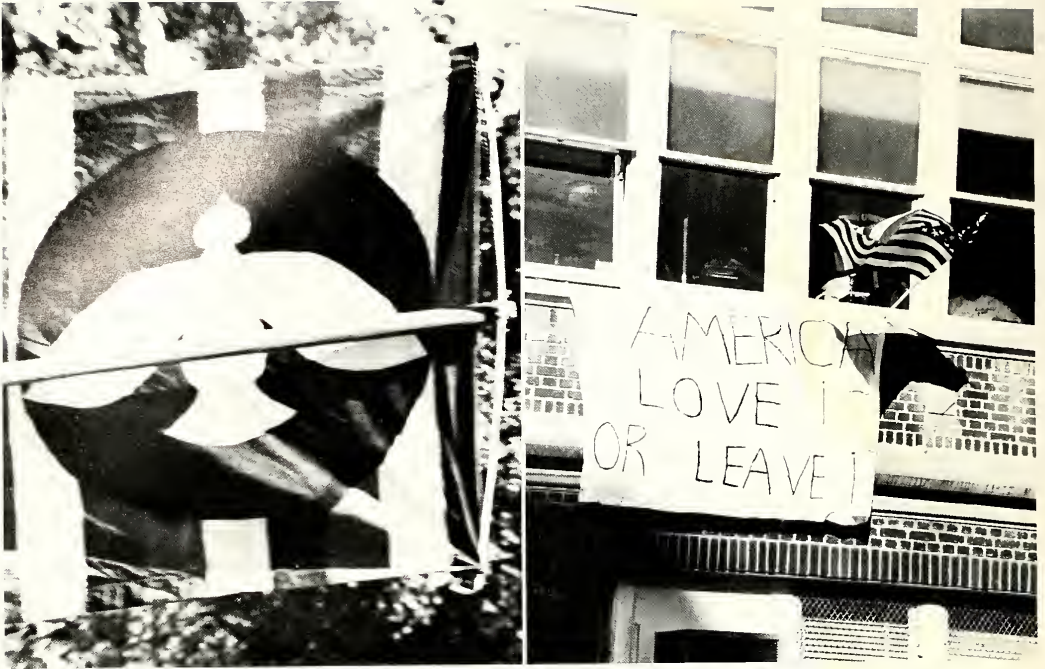 AMERICA
LOVE IT
OR LEAVE I